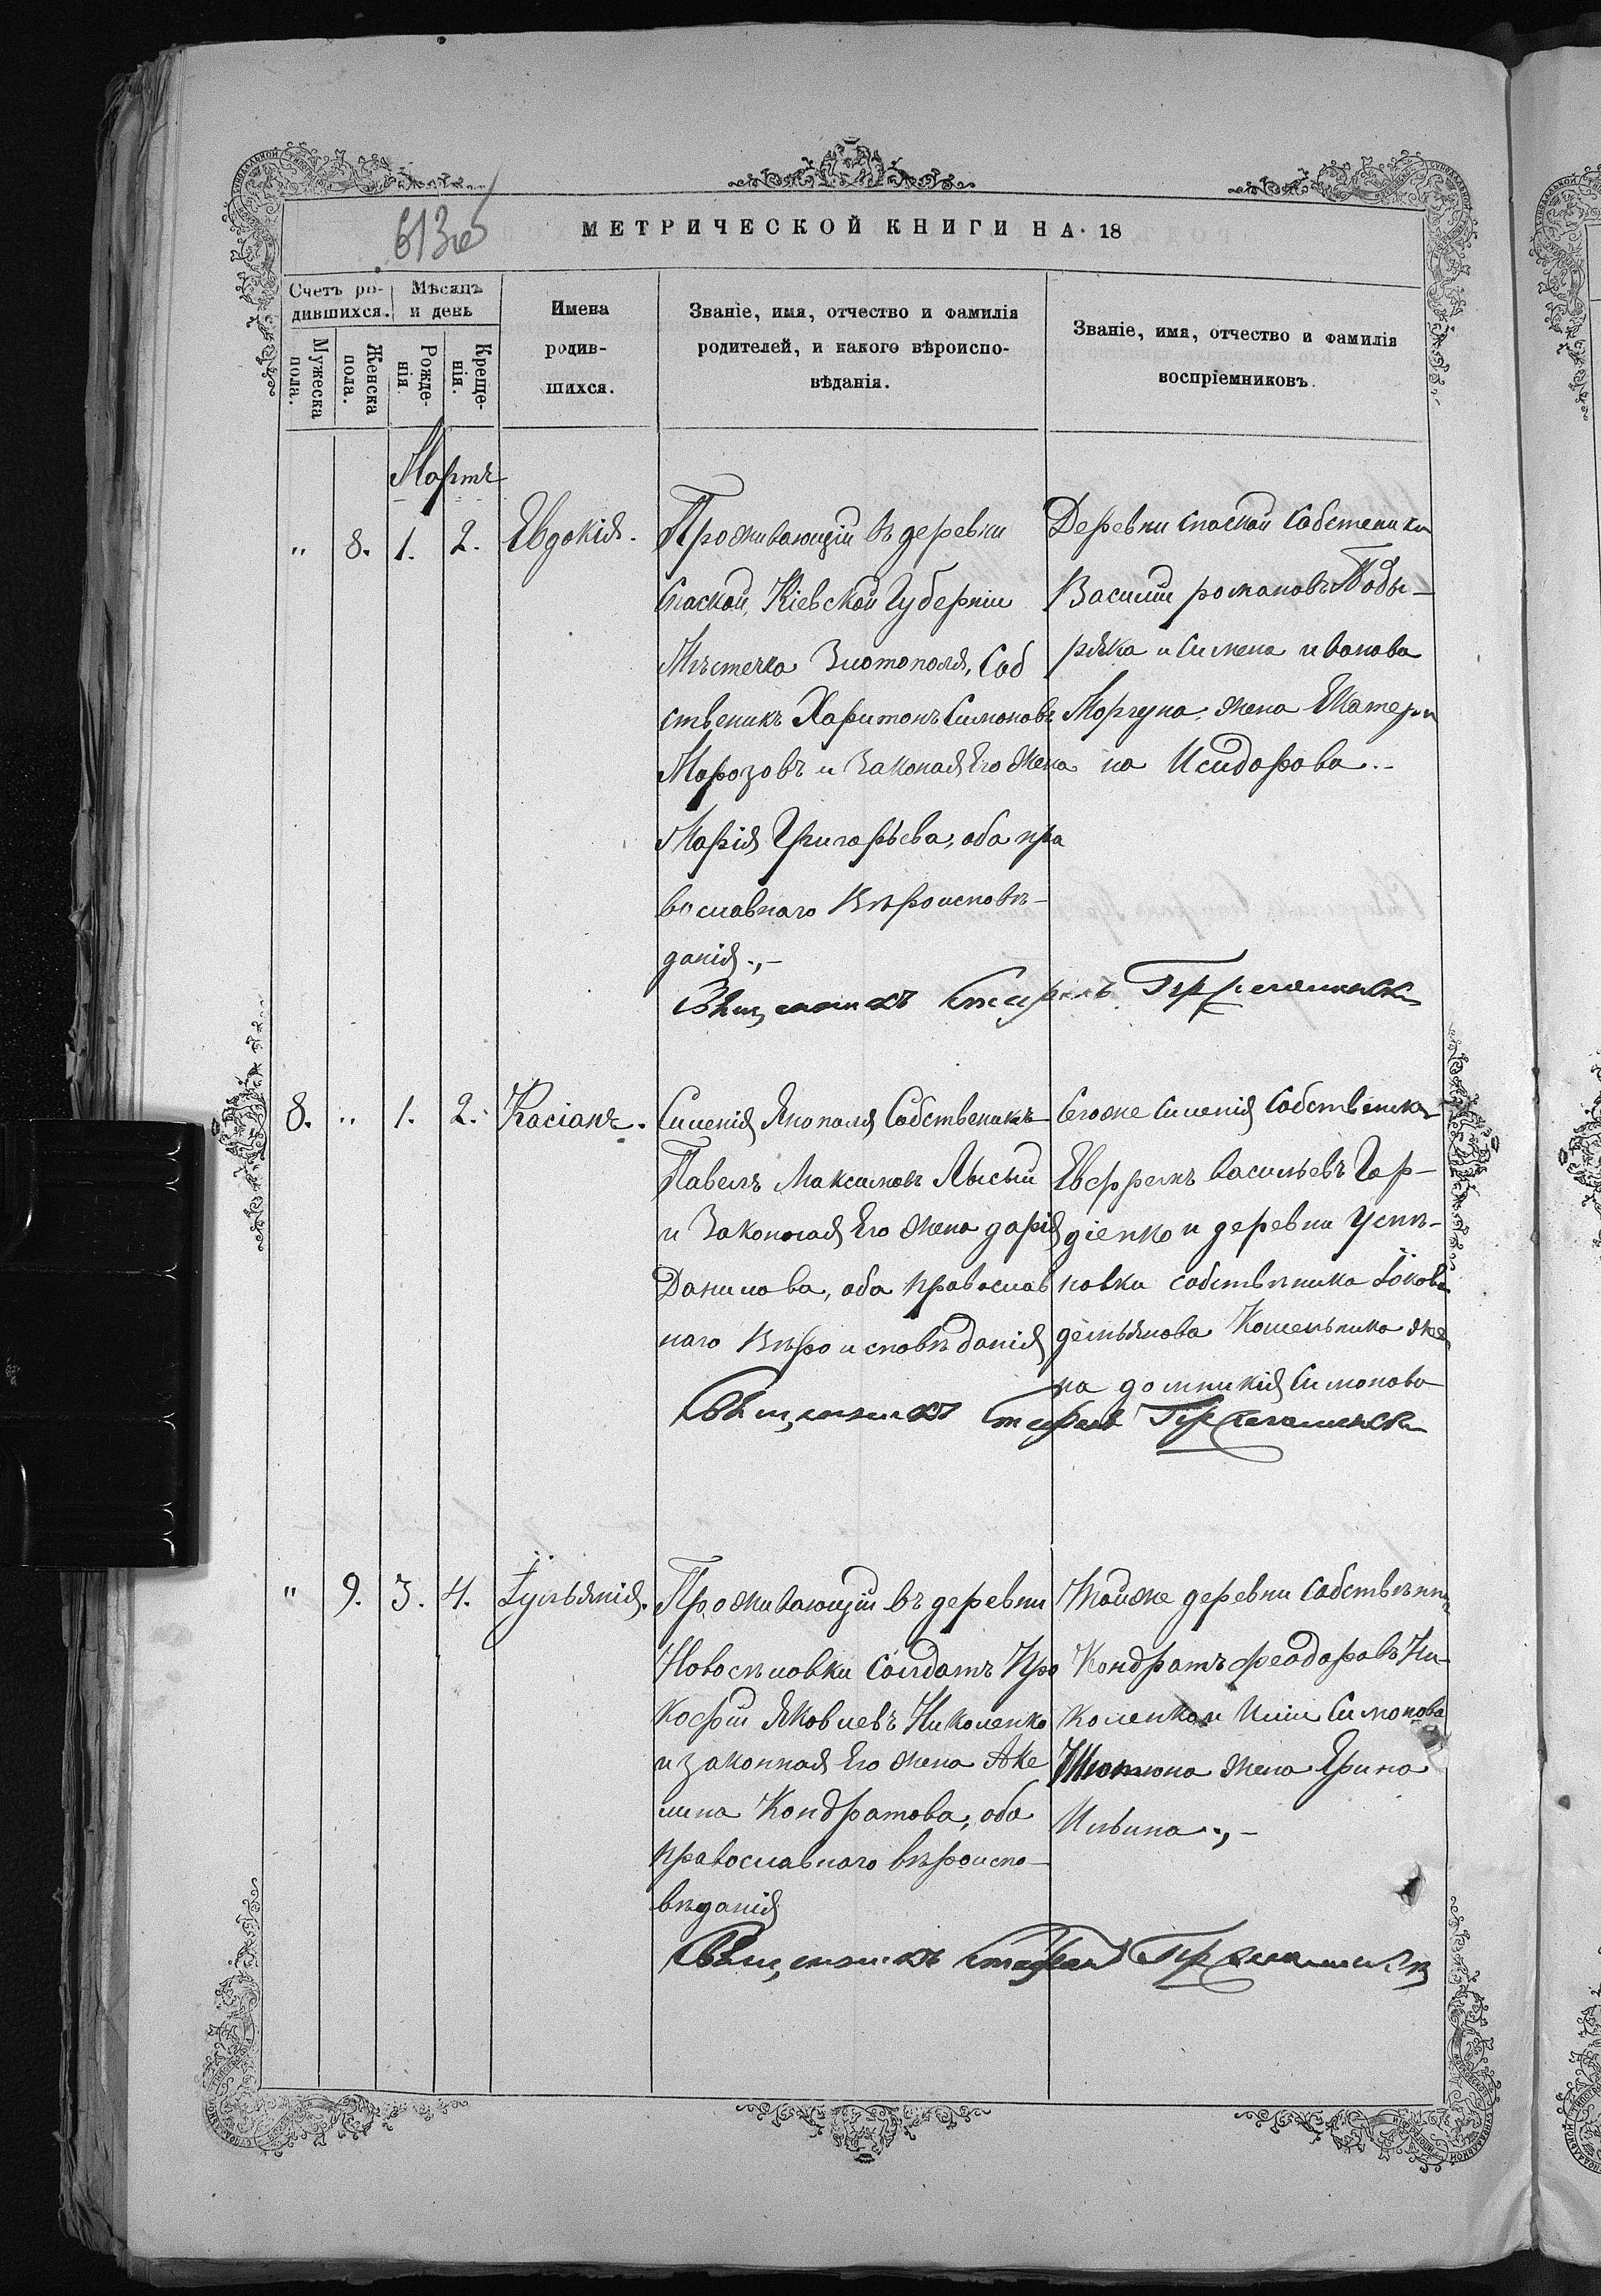 613об
МЕТРИЧЕСКОЙ КНИГИ НА 18
Счетъ ро-
дившихся.
Мѣсяцъ
и день
Мужеска
пола.
Женска
пола.
Рожде-
нія
Креще-
нія.
Имена
родив-
шихся.
Званіе, имя, отчество и фамилія
родителей, и какого вѣроиспо-
вѣданія.
Званіе, имя, отчество и фамилія
воспріемниковъ.
Мартъ
" 8. 1. 2. Евдокія.
Проживающій въ деревни
Спаской, Кіевской Губерніи
Мѣстечка Златополя, Соб
ственикъ Харитонъ Симоновъ
Морозовъ и Законая Его Жена
Марія Григорьева, оба пра
вославнаго Вѣроисповѣ-
данія.,-
Деревни Спаской Собственики
Василій романовъ
и Симена иванова
Моргуна, жена Екатери
на Исидорова..
Священникъ Стефанъ
8. " 1. 2. Касіанъ.
Силенія Янополя Собственикъ
Павелъ Максимовъ Лысый
и Законная Его Жена дарія
Данилова, оба православ
наго Вѣроисповѣданія
Егоже Силенія Собственикъ
Евфремъ васильевъ Гор-
діенко и деревни Успѣ-
новки собственика Іакова
демьянова Кошельника же
на домникія Симонова
Священникъ Стефанъ
" 9. 3. 4. Іульянія.
Проживающій въ деревни
Новоселовки Солдатъ Про
кофій Яковлевъ Николенко
и законная Его жена Аке
лина Кондратова, оба
православнаго вѣроиспо-
вѣданія
Тойже деревни Собственники
Кондратъ феодоровъ Ни-
коленко и Иліи Симонова
жена Ирина
Ильина.,-
Священникъ Стефанъ